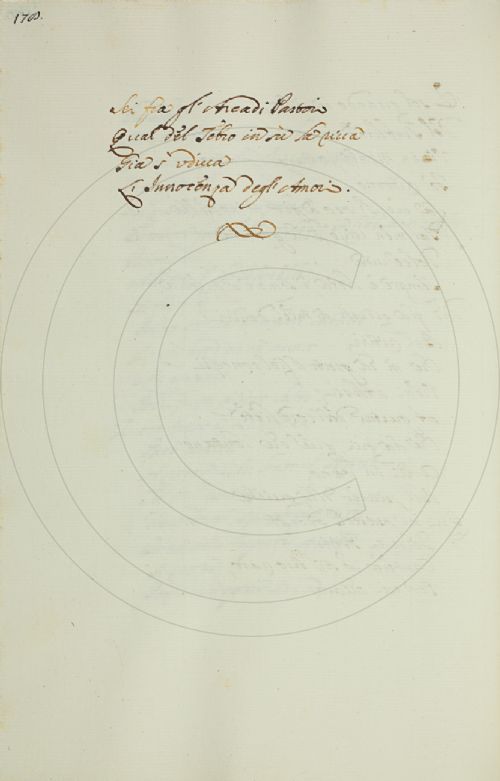 1708.
fra gl'Arcadi Pastori
Qual del Tebro in sù la riua
Già s'vdiua
L'Innocenza degl'Amori.